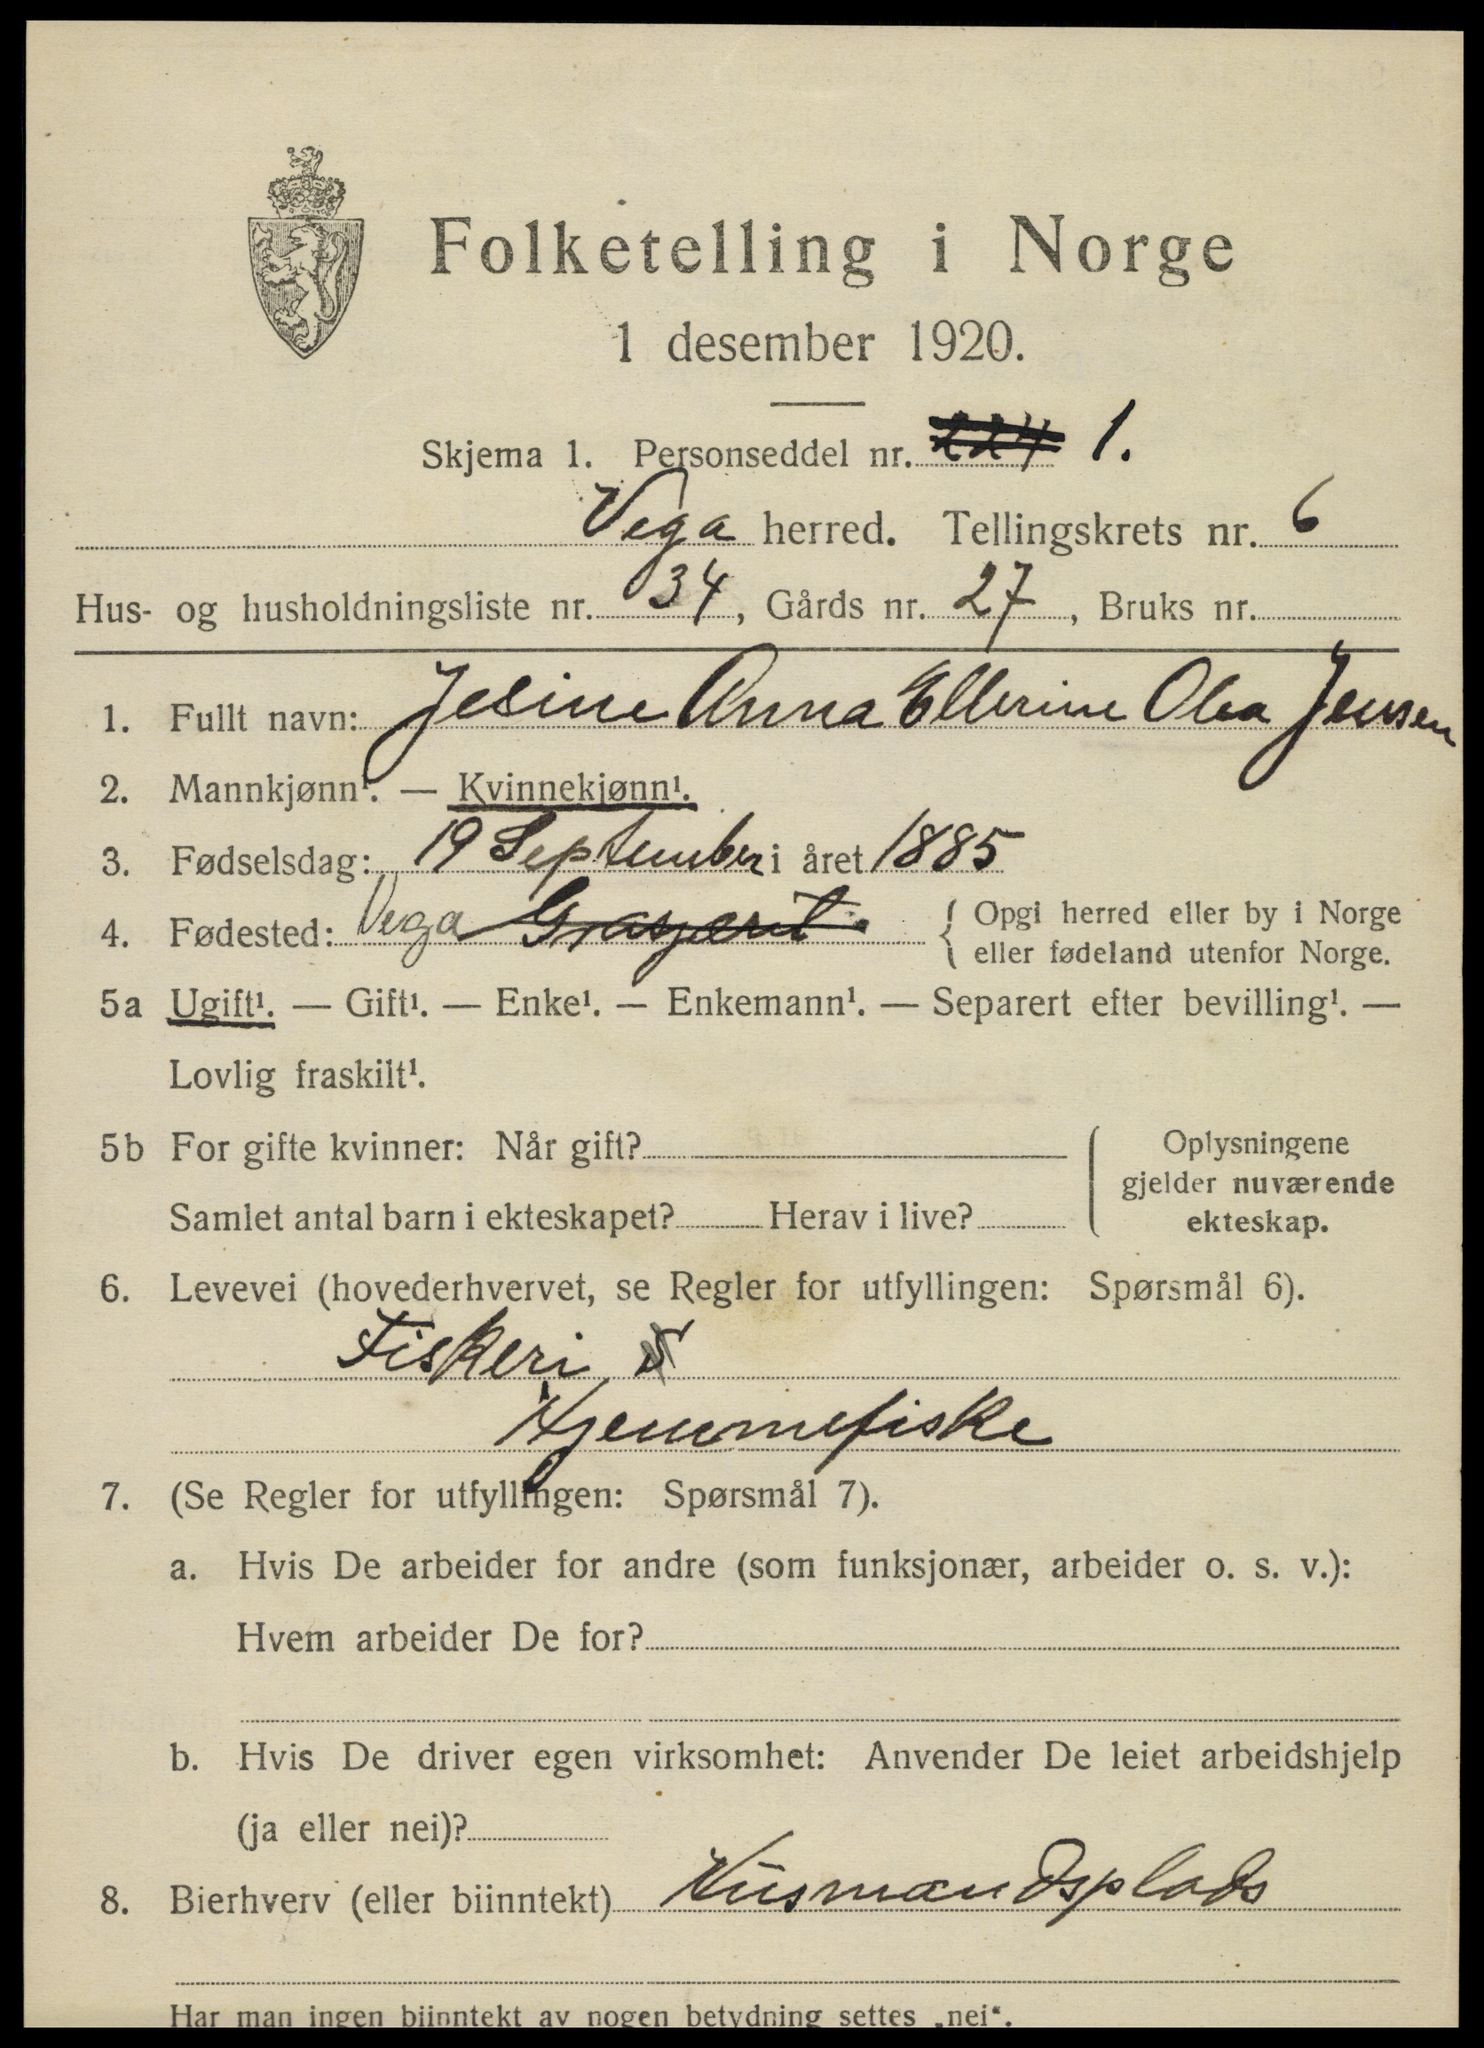 Folketelling i Norge
1 desember 1920.
Skjema 1. Personseddel nr. 224 1.
Vega herred. Tellingskrets nr. 6
Hus- og husholdningsliste nr. 34, Gårds nr. 27, Bruks nr.
1. Fullt navn: Jesine Anna Ellerine Olea Jensen
2. Mannkjønn¹. — Kvinnekjønn¹.
3. Fødselsdag: 19 September i året 1885
4. Fødested: Vega
Opgi herred eller by i Norge
eller fødeland utenfor Norge.
5a Ugift¹. — Gift¹. — Enke¹. — Enkemann¹. — Separert efter bevilling¹. —
Lovlig fraskilt¹.
5b For gifte kvinner: Når gift?
Samlet antal barn i ekteskapet? Herav i live?
Oplysningene
gjelder nuværende
ekteskap.
6. Levevei (hovederhvervet, se Regler for utfyllingen: Spørsmål 6).
Fiskeri S
Hjemmefiske
7. (Se Regler for utfyllingen: Spørsmål 7).
a. Hvis De arbeider for andre (som funksjonær, arbeider o. s. v.):
Hvem arbeider De for?
b. Hvis De driver egen virksomhet: Anvender De leiet arbeidshjelp
(ja eller nei)?
8. Bierhverv (eller biinntekt) Husmandsplads
Har man ingen biinntekt av nogen betydning settes „nei“.